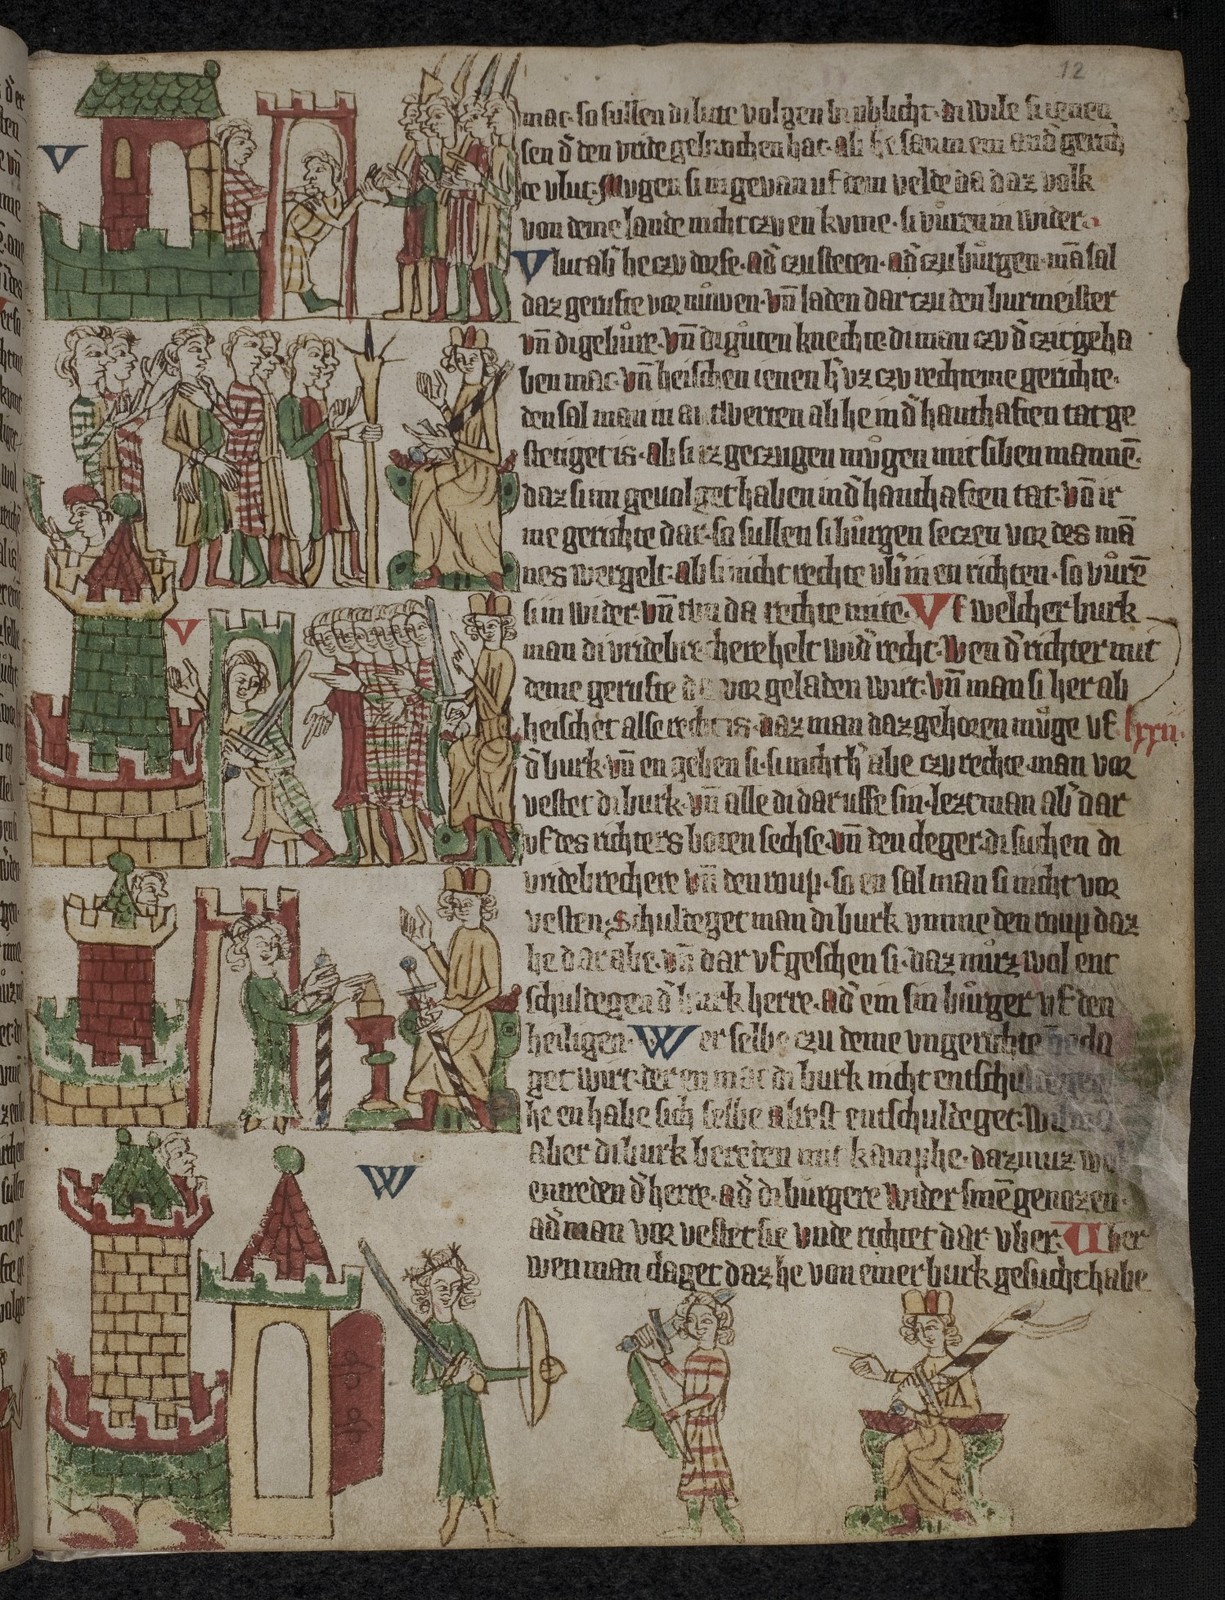 12
V
mac· so sullen di lute volgen · di wile si ienen
sen d̄ den vride gebrochen hat· ab he san in ein and̄ gerich
te vlut· Mvgen si in gevan uf dem velde da daz volk
von deme lande nicht czv en kvme· si vůren in wider
Vlut ab̄ he czv dorfe· ad̄ czu steten· ad̄ czu bůrgen· mā sal
daz gerufte vor nůwen· vn̄ laden dar tzu den burmeister
vn̄ di gebůre· vn̄ di gůten knechte di man czv d̄ czit geha
ben mac· vn̄ heischen ienen h̄ vz czv rechteme gerichte·
den sal man in antwerten ab he in d̄ hanthaften tat ge
steiget is· ab si iz geczugen můgen mit siben mannē·
daz si im gevolget haben in d̄ hanthaften tat· vō ir
me gerichte dar· so sullen si bůrgen seczen vor des mā
nes wergelt· ab si nicht rechte vb̄ in en richten· so vůrē
si in wider· vn̄ da rechte mite· Vf welcher burk
man di vridebrechere helt wid̄ recht· Wen d̄ richter mit
deme gerufte da vor geladen wirt· vn̄ man si her ab
heischet alse recht is· daz man daz gehoren můge vf lxxii·
d̄ burk· vn̄ en geben si si nicht h̄ abe czv rechte· man vor
vestet di burk· vn̄ alle di daruffe sin· lezt man ab̄ dar
vf des richters boten sechse· vn̄ den cleger· di suchen di
vridebrechere vn̄ den roup· so en sal man si nicht vor
vesten· Schuldeget man di burk vmme den roup daz
he dar abe· vn̄ dar vf geschen si· daz můz wol ent
schuldegen d̄ burk herre· ad̄ ein sin bůrger vf den
heiligen· Wer selbe czu deme vngerichte
get wirt· der en mac di burk nicht
he en habe sich selbe alrest entschuldeget·
aber di burk bereten mit kamphe· daz muz
entreden d̄ herre· ad̄ di burgere wider sinē genozen·
ad̄ man vor vestet sie vnde richtet dar vber· Uber
wen man claget daz he von einer burk gesucht habe
V
W